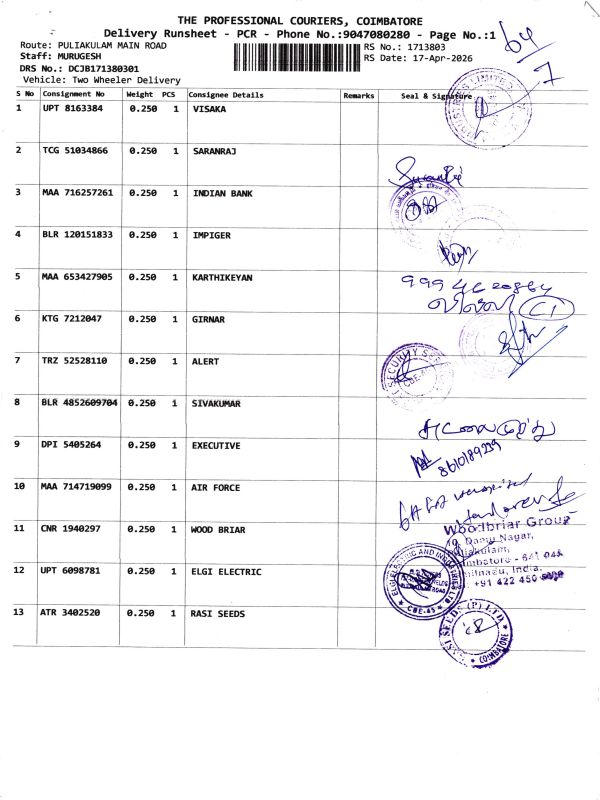 THE PROFESSIONAL COURIERS, COIMBATORE
Delivery Runsheet - PCR - Phone No.:9047080280 - Page No.:1
Route: PULIAKULAM MAIN ROAD
RS No.: 1713803
Staff: MURUGESH
RS Date: 17-Apr-2026
DRS No.: DCJB171380301
Vehicle: Two Wheeler Delivery
64
7
S No Consignment No Weight PCS Consignee Details Remarks Seal & Signature
1 UPT 8163384 0.250 1 VISAKA
2 TCG 51034866 0.250 1 SARANRAJ
3 MAA 716257261 0.250 1 INDIAN BANK
4 BLR 120151833 0.250 1 IMPIGER
5 MAA 653427905 0.250 1 KARTHIKEYAN
6 KTG 7212047 0.250 1 GIRNAR
7 TRZ 52528110 0.250 1 ALERT
SECURITY
8 BLR 4852609704 0.250 1 SIVAKUMAR
9 DPI 5405264 0.250 1 EXECUTIVE
8610189239
10 MAA 714719099 0.250 1 AIR FORCE
11 CNR 1940297 0.250 1 WOOD BRIAR
Woodbriar Group
Nagar,
+91 422 450
12 UPT 6098781 0.250 1 ELGI ELECTRIC
ELGI ELECTRIC AND INDUSTRIES LTD
CBE-45
13 ATR 3402520 0.250 1 RASI SEEDS
RASI SEEDS (P) LTD.
COIMBATORE